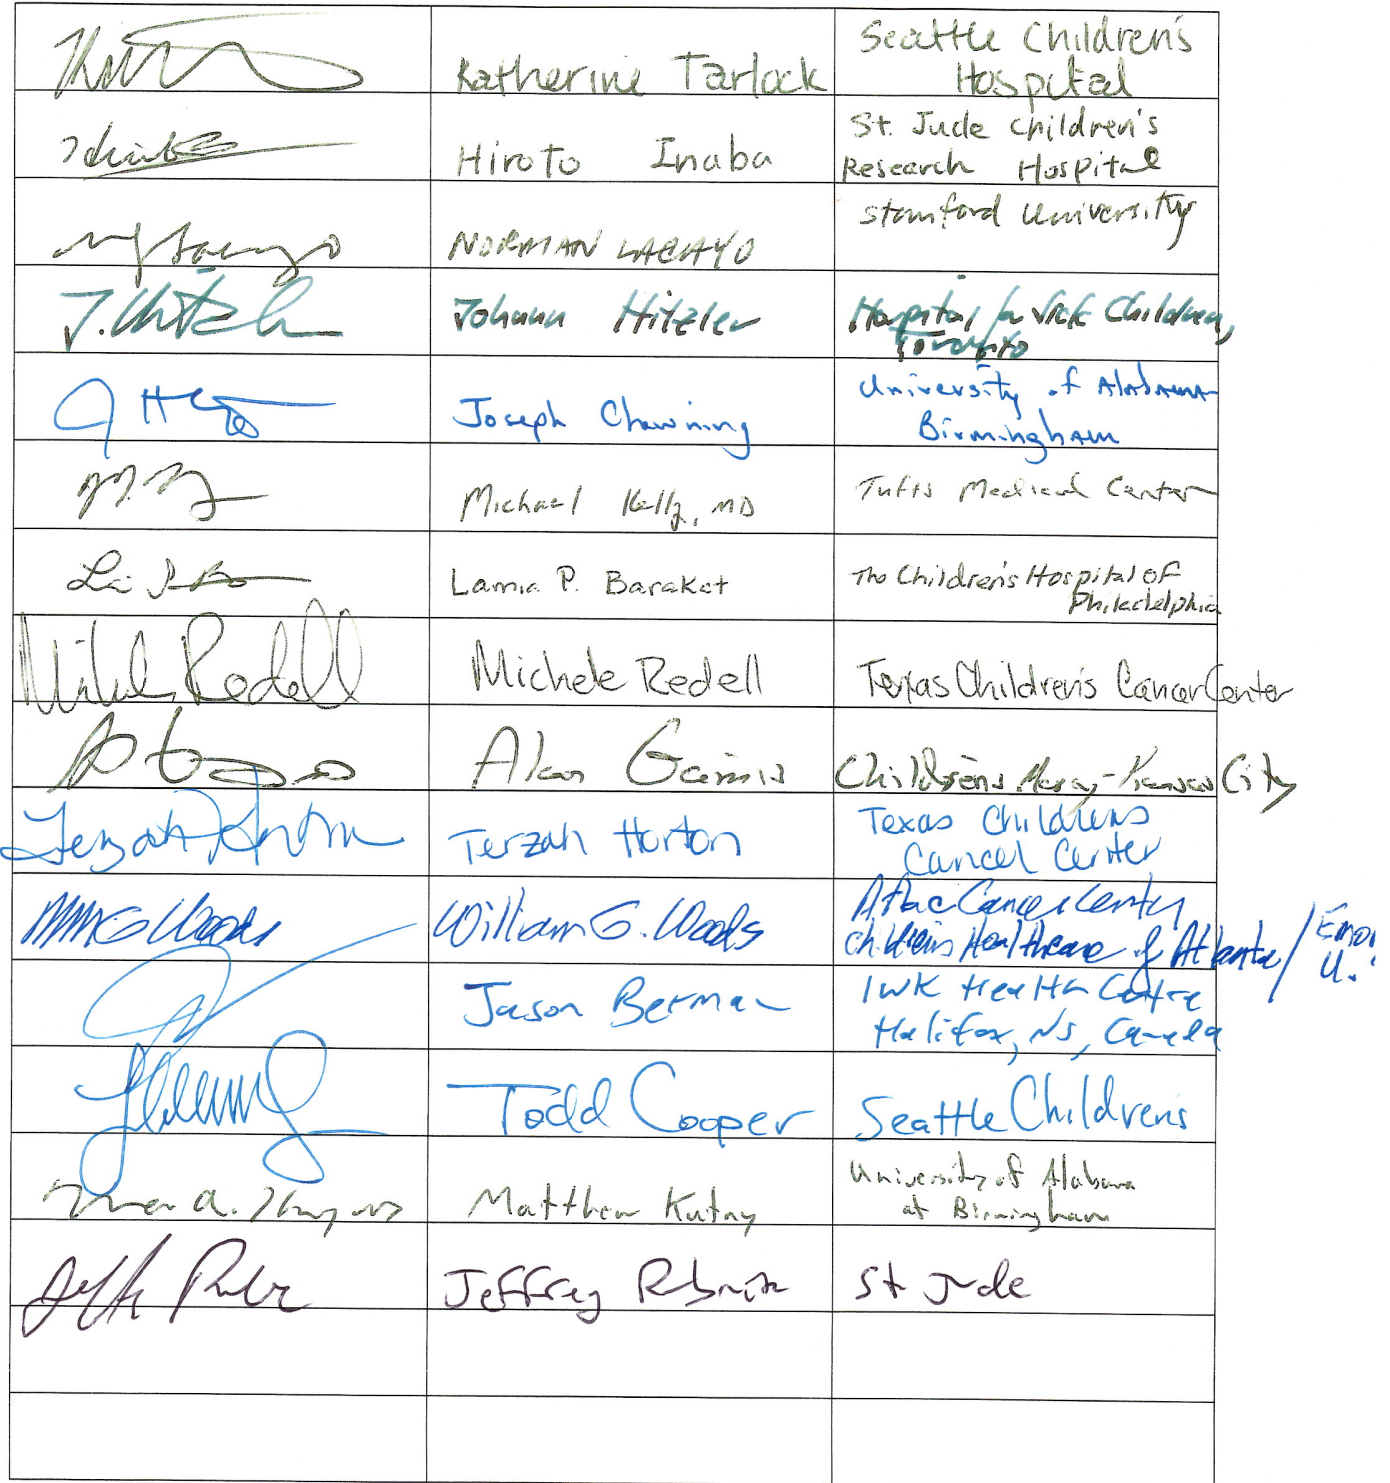 Katherine Tarlock
Seattle Children's
Hospital
Hiroto Inaba
St. Jude Children's
Research Hospital
NORMAN LACAYO
Stanford University
J. Hitzler
Johann Hitzler
Hospital for Sick Children,
Toronto
Joseph Chewning
University of Alabama
Birmingham
Michael Kelly, MD
Tufts Medical Center
Lamia P. Barakat
The Children's Hospital of
Philadelphia
Michele Redell
Michele Redell
Texas Children's Cancer Center
Alan Gamis
Childrens Mercy-Kansas City
Terzah Horton
Terzah Horton
Texas Childrens
Cancer Center
William G. Woods
Aflac Cancer Center
Childrens Healthcare of Atlanta / Emory
U.
Jason Berman
IWK Health Centre
Halifax, NS, Canada
Todd Cooper
Seattle Childrens
Matthew Kutny
University of Alabama
at Birmingham
Jeffrey Rubnitz
St Jude